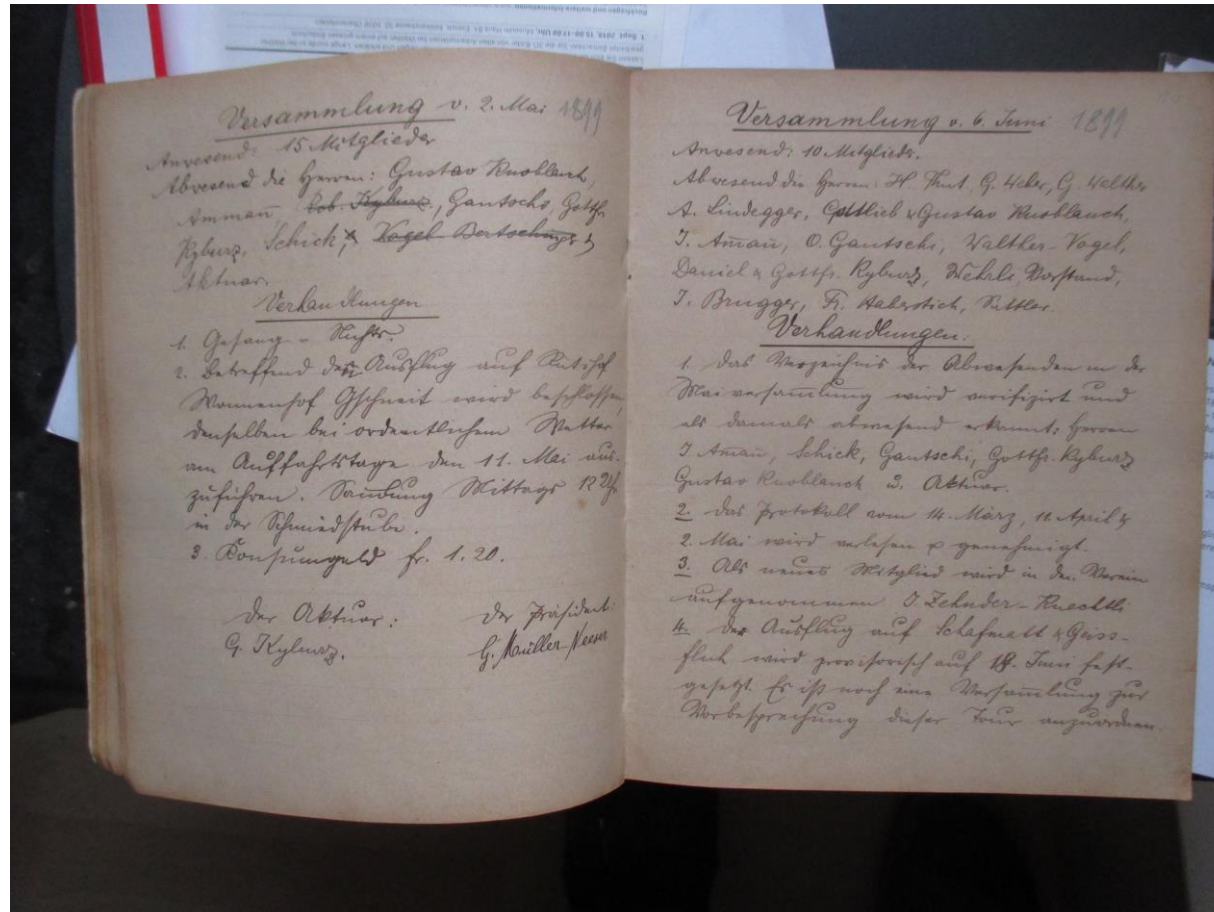 Versammlung v. 2. Mai 1899
Anwesend: 15 Mitglieder
Abwesend die Herren: Gustav Knoblauch,
Ammañ, Rob. Kyburz, Gautschi, Gottfr.
Kyburz, Schick, Vogel-Bertschinger &
Aktuar.
Verhandlungen
1. Gesang - Nichts.
2. Betreffend den Ausflug auf Rütihof
Wannenhof Gschneit wird beschlossen,
denselben bei ordentlichem Wetter
am Auffahrtstage den 11. Mai aus-
zuführen. Sam̄lung Mittags 12 Uhr
in der Schmiedstube.
3. Konsumgeld fr. 1.20.
Der Aktuar: Der Präsident:
G. Kyburz. G. Müller-Neeser
Versammlung v. 6. Juni 1899
Anwesend: 10 Mitglieder.
Abwesend die Herren: H. G. Weber, G. Walther
A. Lindegger, Gottlieb & Gustav Knoblauch,
J. Am̄an, O. Gautschi, Walther-Vogel,
Daniel & Gottfr. Kyburz, Wehrli, Vorstand,
J. Brugger, Fr. Haberstich, Sattler.
Verhandlungen.
1. Das Verzeichnis der Abwesenden in der
Maiversam̄lung wird verifizirt und
als damals abwesend erkannt: Herren
J. Am̄an, Schick, Gautschi, Gottfr. Kyburz
Gustav Knoblauch u. Aktuar.
2. Das Protokoll vom 14. März, 11. April &
2. Mai wird verlesen & genehmigt.
3. Als neues Mitglied wird in den Verein
aufgenommen J. Zehnder-Knechtli
4. Der Ausflug auf Schafmatt & Geiss-
fluh wird provisorisch auf 18. Juni fest-
gesetzt. Es ist noch eine Versam̄lung zur
Vorbesprechung dieser Tour anzuordnen.